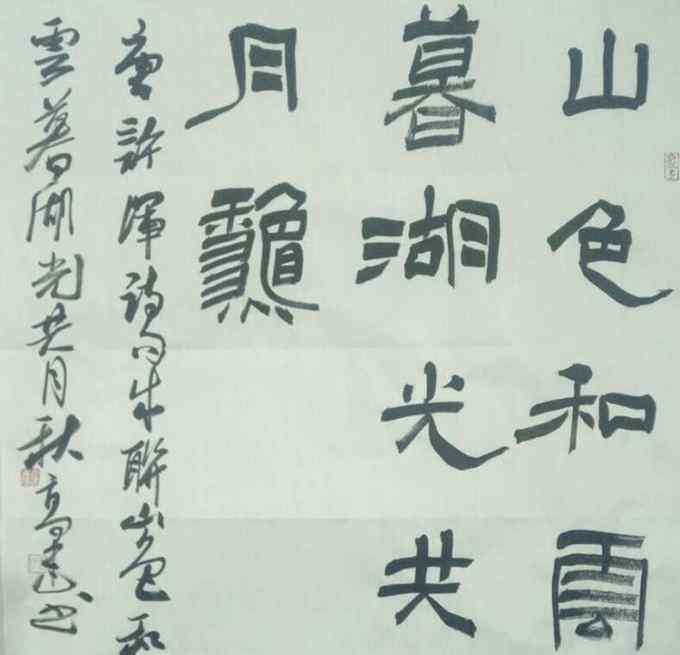 山色和雲
暮湖光共
月龝
唐許渾詩句聯山色和
雲暮湖光共月秋高书